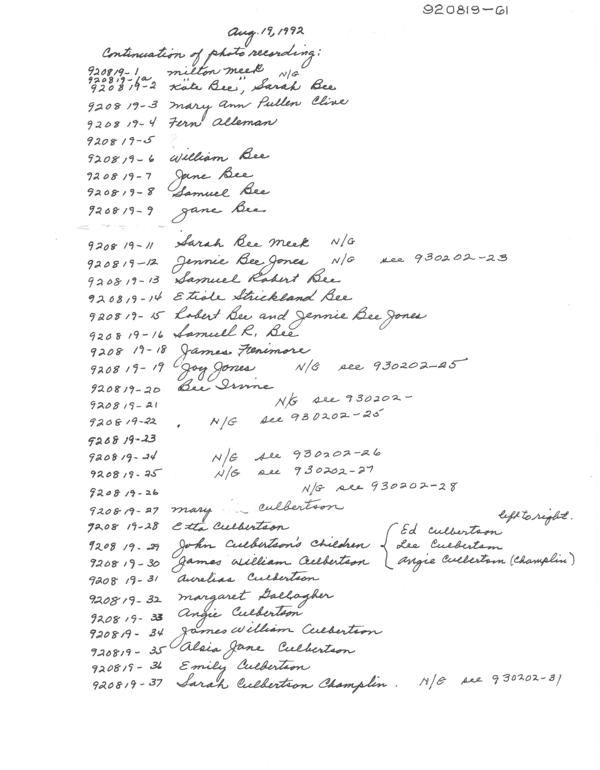 920819-G1
Aug. 19, 1992
Continuation of photo recording:
920819-1 Milton Meek N/G
920819-1a
920819-2 "Kate Bee", Sarah Bee
920819-3 Mary Ann Pullen Cline
920819-4 Fern Alleman
920819-5
920819-6 William Bee
920819-7 Jane Bee
920819-8 Samuel Bee
920819-9 Jane Bee
920819-11 Sarah Bee Meek N/G
920819-12 Jennie Bee Jones N/G see 930202-23
920819-13 Samuel Robert Bee
920819-14 Strickland Bee
920819-15 Robert Bee and Jennie Bee Jones
920819-16 Samuel R. Bee
920819-18 James Fenimore
920819-19 Joy Jones N/G see 930202-25
920819-20 Bee Irvine
920819-21 N/G see 930202-
920819-22 . N/G see 930202-25
920819-23
920819-24 N/G see 930202-26
920819-25 N/G see 930202-27
920819-26 N/G see 930202-28
920819-27 Mary Culbertson
left to right.
920819-28 Etta Culbertson { Ed Culbertson
920819-29 John Culbertson's Children Lee Culbertson
920819-30 James William Culbertson Angie Culbertson (Champlin)
920819-31 Aurelias Culbertson
920819-32 Margaret Gallagher
920819-33 Angie Culbertson
920819-34 James William Culbertson
920819-35 Alsia Jane Culbertson
920819-36 Emily Culbertson
920819-37 Sarah Culbertson Champlin. N/G see 930202-31